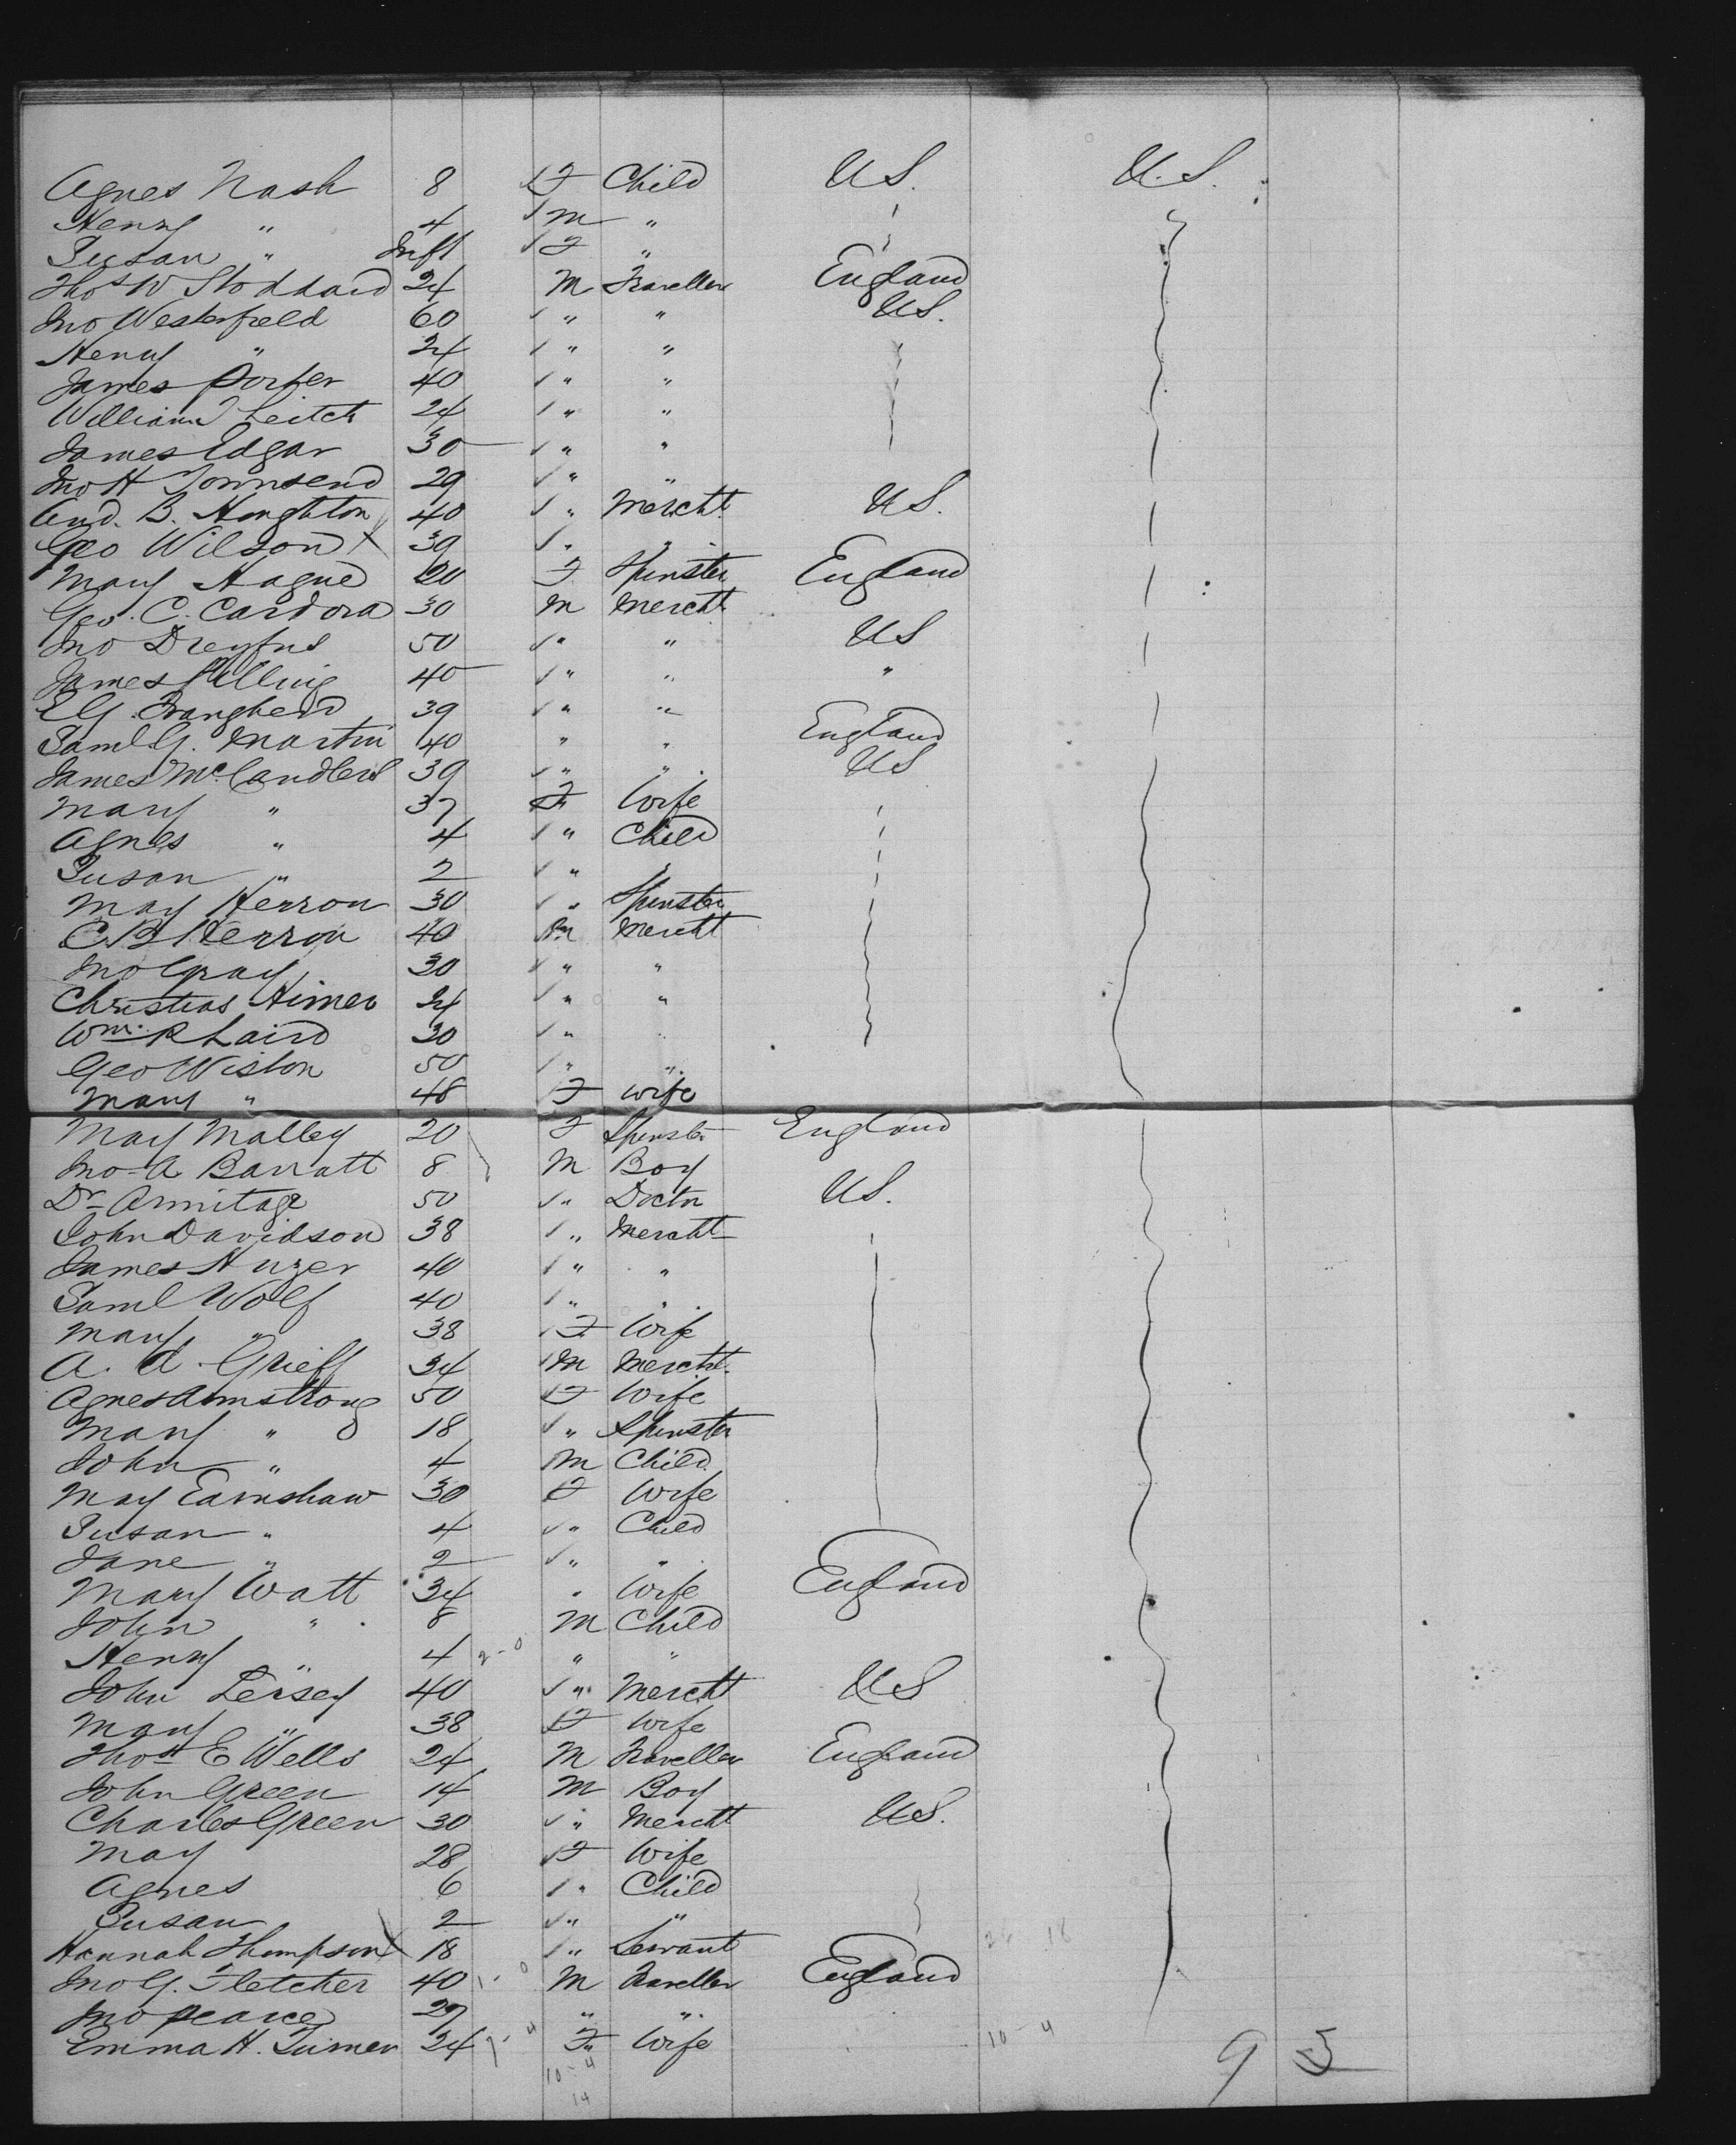 Agnes Nash 8 F Child U S. U. S.
Henry " 4 m "
Susan " Inft F "
Thos W Stoddard 24 M Traveller England
Jno Westerfield 60 " " U S.
Henry " 24 " "
James Porter 40 " "
William Leitch 24 " "
James Edgar 30 " "
Jno H Townsend 29 " "
And. B. Houghton 40 " Mercht U S.
Geo Wilson X 39 " "
Mary Hague 20 F Spinster England
Geo. C. Cardora 30 M Mercht
Jno Dreyfus 50 " " U S
James 40 " " "
39 " "
Saml G. Martin 40 " " England
James McCandless 39 " " U S
Mary " 37 F Wife
Agnes " 4 " Child
Susan " 2 " "
May Herron 30 " Spinster
C B Herron 40 M Mercht
Jno Gray 30 " "
Christias Himer 24 " "
Wm R Laird 30 " "
Geo Wiston 50 " "
Mary " 48 F Wife
May Malley 20 F Spinster England
Jno A Barratt 8 M Boy
Dr Armitage 50 " Doctor U S.
John Davidson 38 " Mercht
James Huzer 40 " "
Saml Wolf 40 " "
Mary " 38 F Wife
A. A. Grieff 34 M Mercht.
Agnes Armstrong 50 F Wife
Mary " 18 " Spinster
John " 4 M Child
May Earnshaw 30 F Wife
Susan " 4 " Child
Jane " 2 " "
Mary Watt 34 " Wife England
John " 8 M Child
Henry " 4 2-0 " "
John Lersey 40 " Mercht U S
Mary " 38 F Wife
Thos E Wells 24 M Traveller England
John Green 14 M Boy
Charles Green 30 " Mercht U S.
May 28 F Wife
Agnes 6 " Child
Susan 2 " "
Hannah Thompson X 18 " Servant
Jno G. Fletcher 40 1-0 M Traveller England
Jno Pearce 27 " "
Emma H. Turner 24 7-4 F Wife 10-4
10-4 9 5
14